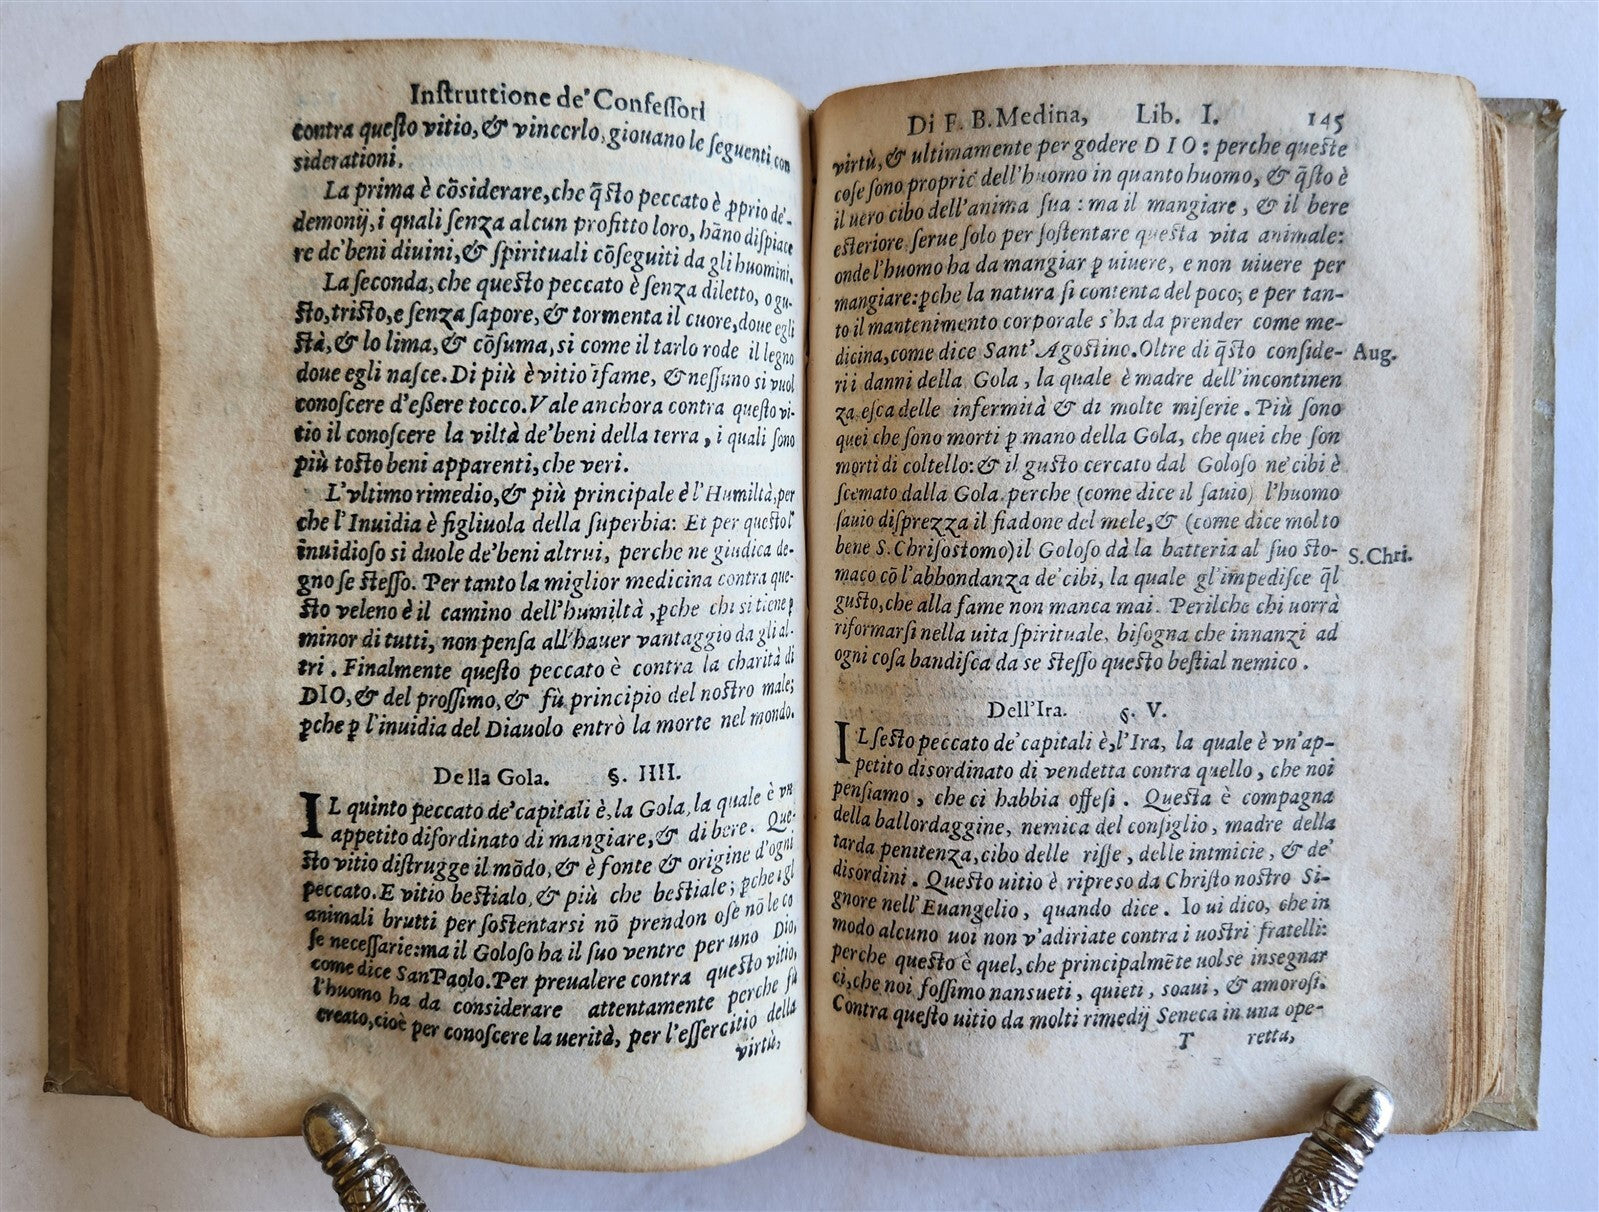 Inſtruttione de' Confeſſori
contra queſto vitio, & vincerlo, giouano le ſeguenti con
siderationi.
La prima è cõsiderare, che q̃sto peccato è ꝓprio de'
demonij, i quali ſenza alcun profitto loro, hãno diſpiace
re de' beni diuini, & ſpirituali cõſeguiti da gli huomini.
La ſeconda, che queſto peccato è ſenza diletto, o gu-
sto, tristo, e ſenza ſapore, & tormenta il cuore, doue egli
stà, & lo lima, & cõſuma, si come il tarlo rode il legno
doue egli naſce. Di più è vitio ĩfame, & neſſuno si vuol
conoſcere d'eßere tocco. Vale anchora contra queſto vi-
tio il conoſcere la viltà de' beni della terra, i quali ſono
più tosto beni apparenti, che veri.
L'vltimo rimedio, & più principale è l'Humiltà, per
che l'Inuidia è figliuola della ſuperbia: Et per questo l'
inuidioſo si duole de' beni altrui, perche ne giudica de-
gno ſe steſſo. Per tanto la miglior medicina contra que-
sto veleno è il camino dell'humiltà, ꝑche chi si tiene ꝑ
minor di tutti, non penſa all'hauer vantaggio da gli al-
tri. Finalmente queſto peccato è contra la charità di
DIO, & del proſſimo, & fù principio del nostro male;
ꝑche ꝑ l'inuidia del Diauolo entrò la morte nel mondo.
Della Gola. §. IIII.
IL quinto peccato de' capitali è, la Gola, la quale è vn
appetito diſordinato di mangiare, & di bere. Que-
sto vitio diſtrugge il mõdo, & è fonte & origine d'ogni
peccato. E vitio bestialo, & più che bestiale; ꝑche i gl
animali brutti per ſostentarsi nõ prendon oſe nõ le co
ſe neceſſarie: ma il Goloſo ha il ſuo ventre per uno Dio,
come dice San Paolo. Per preualere contra questo vitio,
l'huomo ha da considerare attentamente perche fù
creato, cioè per conoſcere la uerità, per l'eſſercitio della
virtù,
Di F. B. Medina, Lib. I. 145
virtù, & ultimamente per godere DIO: perche queste
coſe ſono proprie dell'huomo in quanto huomo, & q̃sto è
il uero cibo dell'anima ſua: ma il mangiare, & il bere
esteriore ſerue ſolo per ſostentare questa vita animale:
onde l'huomo ha da mangiar ꝑ uiuere, e non uiuere per
mangiare: ꝑche la natura ſi contenta del poco; e per tan-
to il mantenimento corporale s'ha da prender come me-
dicina, come dice Sant'Agostino. Oltre di q̃sto conſide-
Aug.
ri i danni della Gola, la quale è madre dell'incontinen
za eſca delle infermità & di molte miſerie. Più ſono
quei che ſono morti ꝑ mano della Gola, che quei che ſon
morti di coltello: & il gusto cercato dal Goloſo ne' cibi è
ſcemato dalla Gola. perche (come dice il ſauio) l'huomo
ſauio diſprezza il fiadone del mele, & (come dice molto
bene S. Chriſostomo) il Goloſo dà la batteria al ſuo sto-
S. Chri.
maco cõ l'abbondanza de' cibi, la quale gl'impediſce q̃l
gusto, che alla fame non manca mai. Perilche chi uorrà
riformarſi nella uita ſpirituale, biſogna che innanzi ad
ogni coſa bandiſca da se steſſo questo bestial nemico.
Dell'Ira. §. V.
IL ſesto peccato de' capitali è, l'Ira, la quale è vn'ap-
petito disordinato di vendetta contra quello, che noi
penſiamo, che ci habbia offeſi. Questa è compagna
della ballordaggine, nemica del conſiglio, madre della
tarda penitenza, cibo delle riſſe, delle intmicie, & de'
disordini. Questo uitio è ripreso da Chriſto nostro Si-
gnore nell'Euangelio, quando dice. Io ui dico, che in
modo alcuno uoi non v'adiriate contra i uostri fratelli:
perche questo è quel, che principalmẽte uolse insegnar
ci, che noi foſſimo nansueti, quieti, soaui, & amorosi.
Contra questo uitio da molti rimedij Seneca in una ope-
T retta,